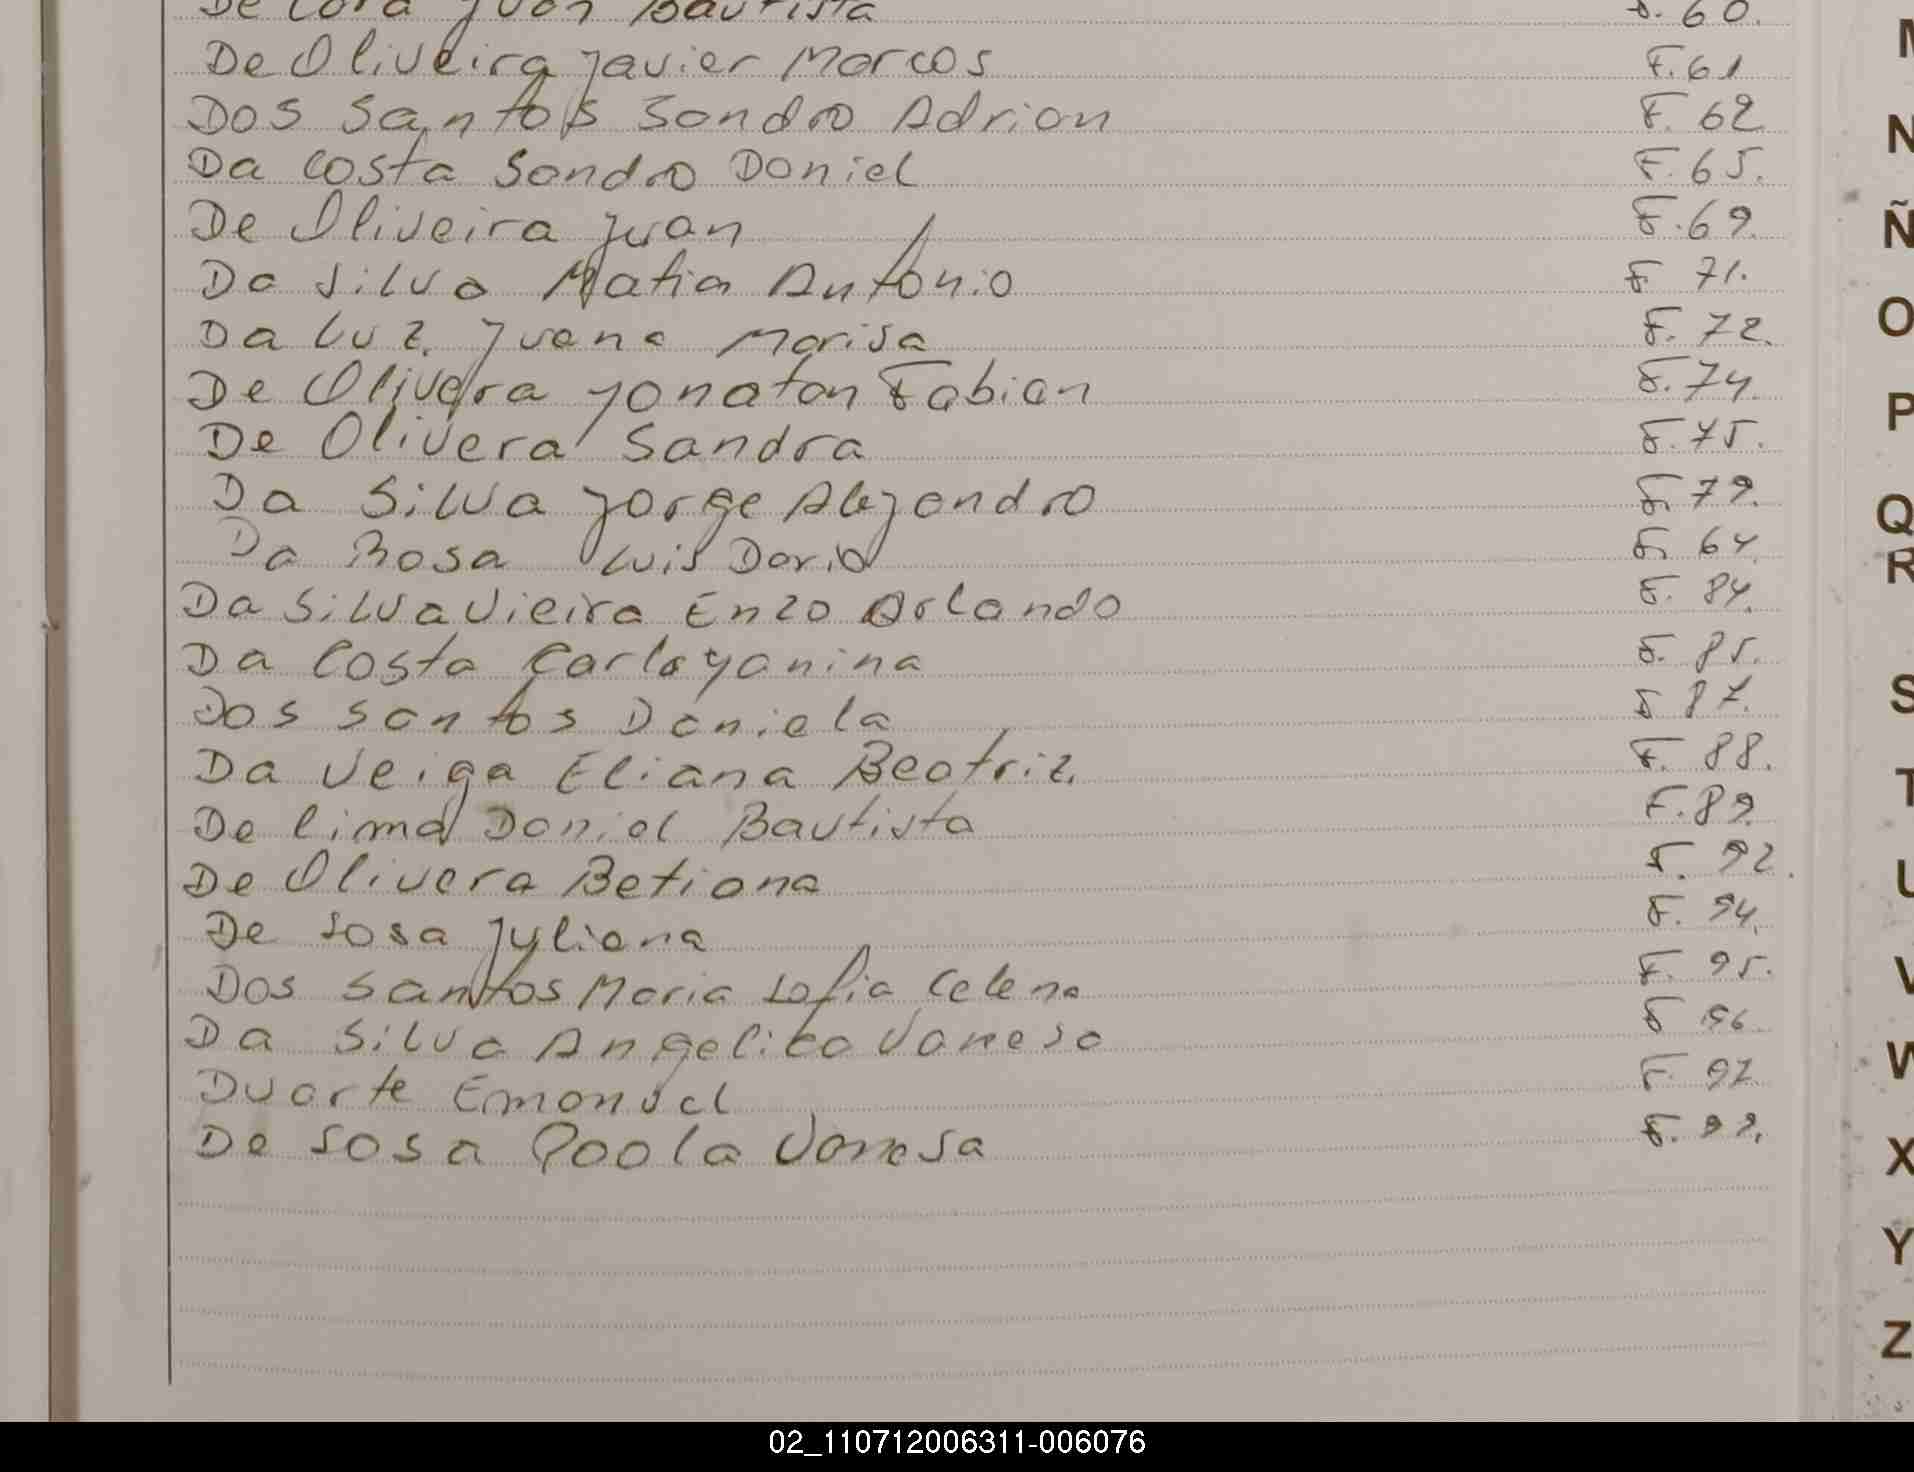 De Lara Juan Bautista F. 60.
De Oliveira Javier Marcos F. 61
Dos Santos Sandro Adrian F. 62
Da Costa Sandro Daniel F. 65.
De Oliveira Juan F. 69.
Da Silva Matia Antonio F 71.
Da Luz Juana Marisa F. 72.
De Olivera Jonatan Fabian F. 74.
De Olivera Sandra F. 75.
Da Silva Jorge Alejandro F. 79.
Da Rosa Luis Dario F. 64.
Da Silva Vieira Enzo Orlando F. 84.
Da Costa Carla Yanina F. 85.
Dos Santos Daniela F 87.
Da Veiga Eliana Beatriz. F. 88.
De Lima Daniel Bautista F. 89.
De Olivera Betiana F. 92.
De Sosa Juliana F. 94.
Dos Santos Maria Sofia Celena F. 95.
Da Silva Angelica Vanesa F 96.
Duarte Emanuel F. 97.
De Sosa Paola Vanesa F.
M
N
Ñ
O
P
Q
R
S
T
U
V
W
X
Y
Z
02_110712006311-006076